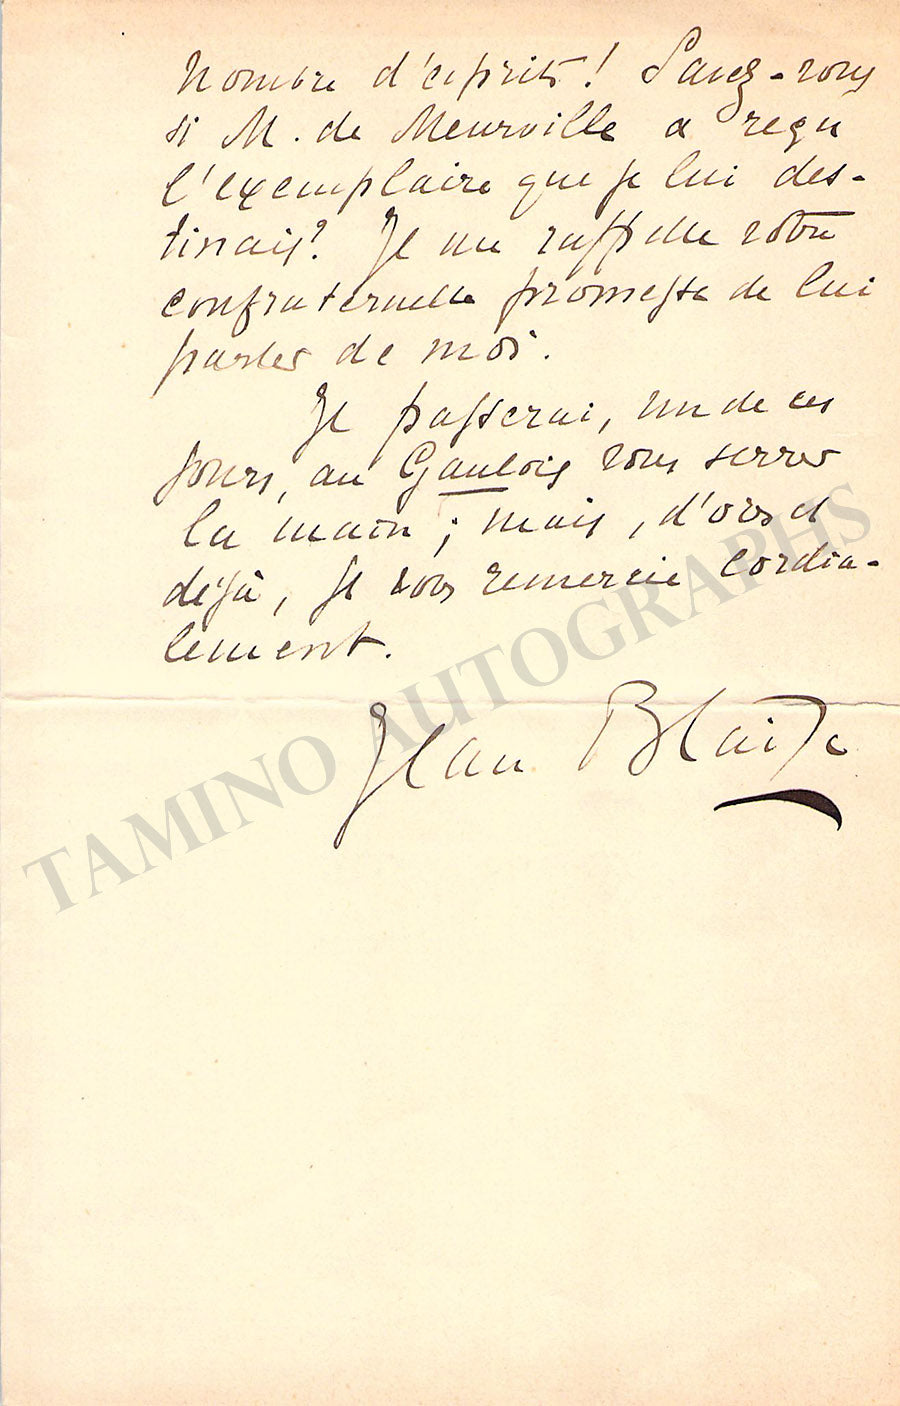 nombre d'esprits! Savez-vous
si M. de Meurville a reçu
l'exemplaire que je lui des-
tinais? Je me rappelle votre
confraternelle promesse de lui
parler de moi.
Je passerai, un de ces
jours, au Gaulois vous serrer
la main; mais, d'ors et
déjà, je vous remercie cordia-
lement.
Jean Blaize
TAMINO AUTOGRAPHS